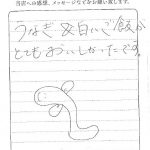 当店への感想、メッセージなどをお願い致します。
うなぎ&白いご飯が
とてもおいしかったです。